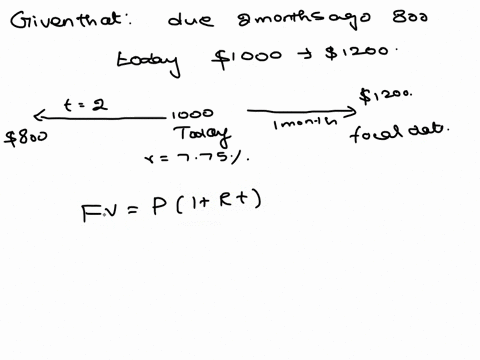 Given that: due 2 months ago 800
today $1000 → $1200.
t = 2
1000
$1200.
$800
Today
1 month
focal dat.
r = 7.75%.
F.V = P (1 + R t)